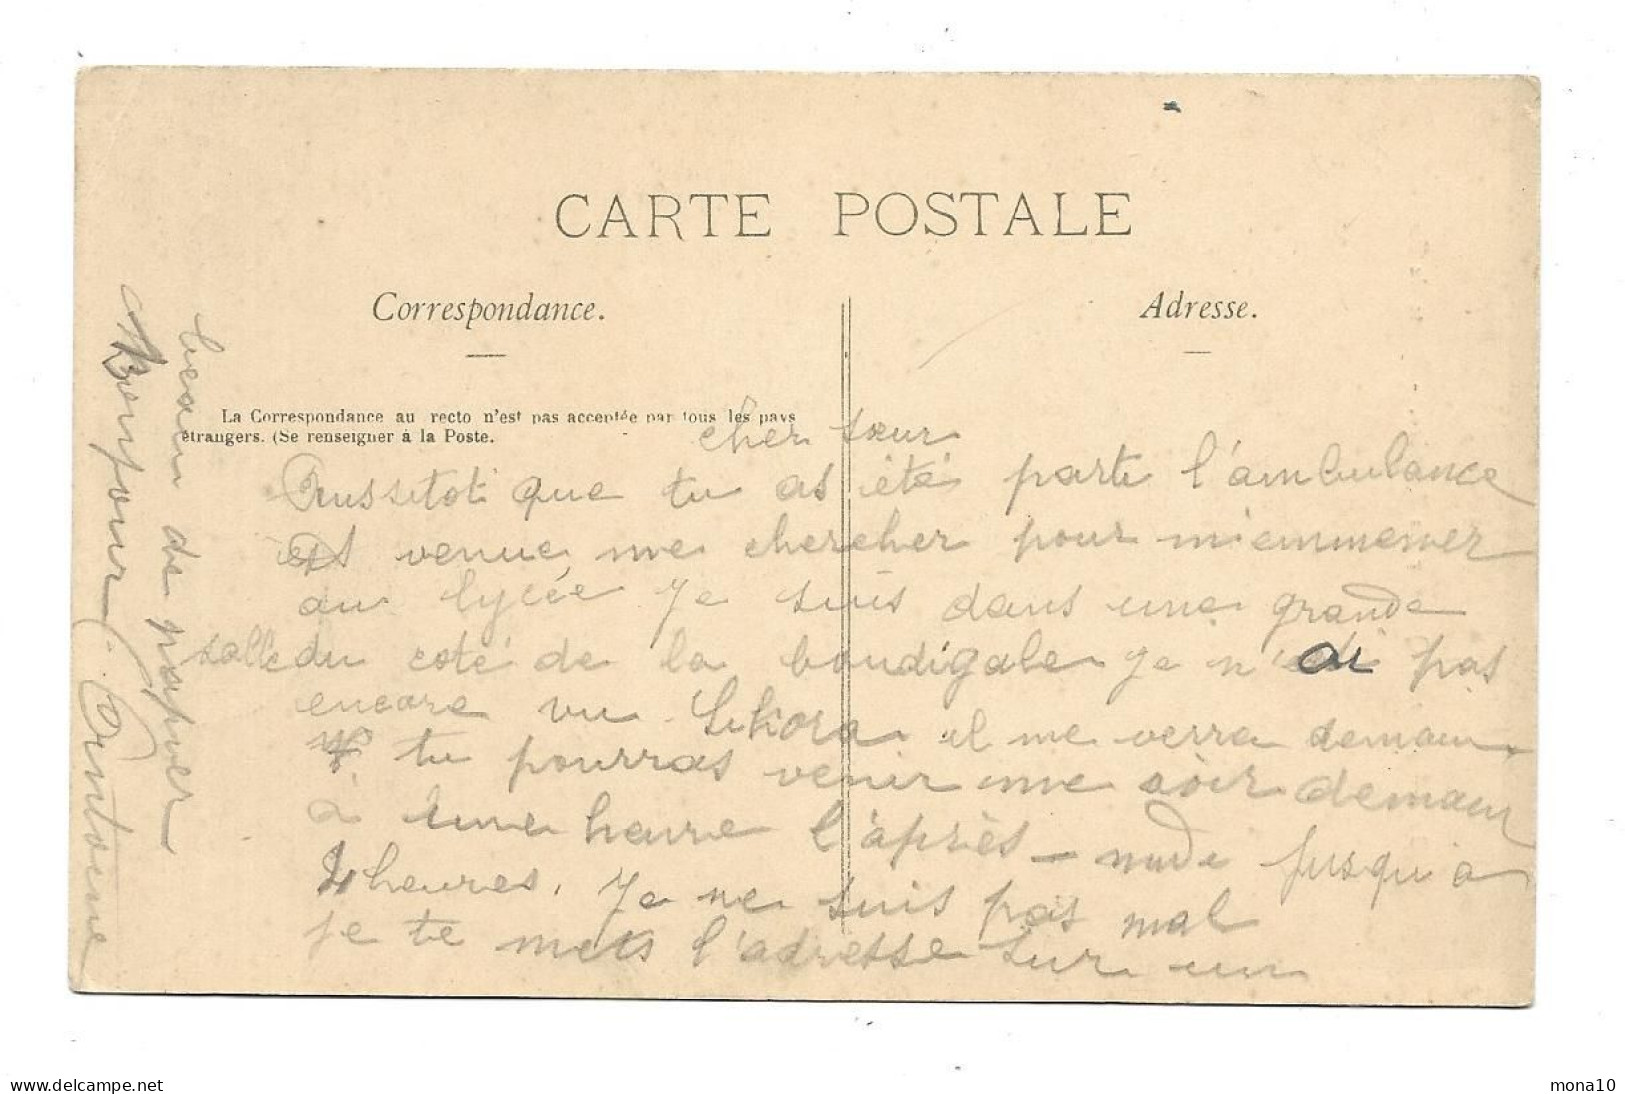 CARTE POSTALE
Correspondance.
Adresse.
La Correspondance au recto n'est pas acceptée par tous les pays
étrangers. (Se renseigner à la Poste.
cher sœur
Aussitot que tu as été parti l'ambulance
est venue me chercher pour m'emmener
au lycée Je suis dans une grande
salle du coté de la boudigale je n'ai pas
encore vu il me verra demain
tu pourras venir me voir demain
à une heure l'après-midi jusqu'a
4 heures. Je ne suis pas mal
je te mets l'adresse sur un
de papier
Bonjour. Antoine
delcampe.net
mona10